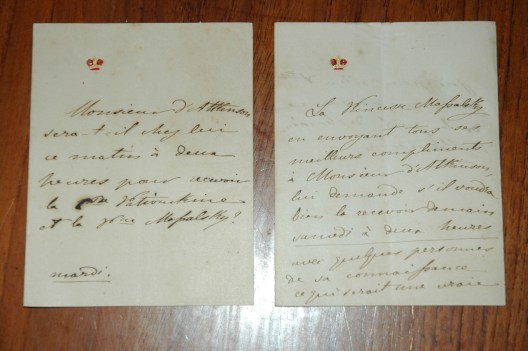 Monsieur d'Atkinson
sera-t-il chez lui
ce matin à deux
heures pour recevoir
la
et la Pcesse Massalsky?
mardi.
La Princesse Massalsky
en envoyant tous ses
meilleurs compliments
à Monsieur d'Atkinson,
lui demande s'il voudra
bien la recevoir demain
samedi à deux heures
avec quelques personnes
de sa connaissance
ce qui serait une vraie